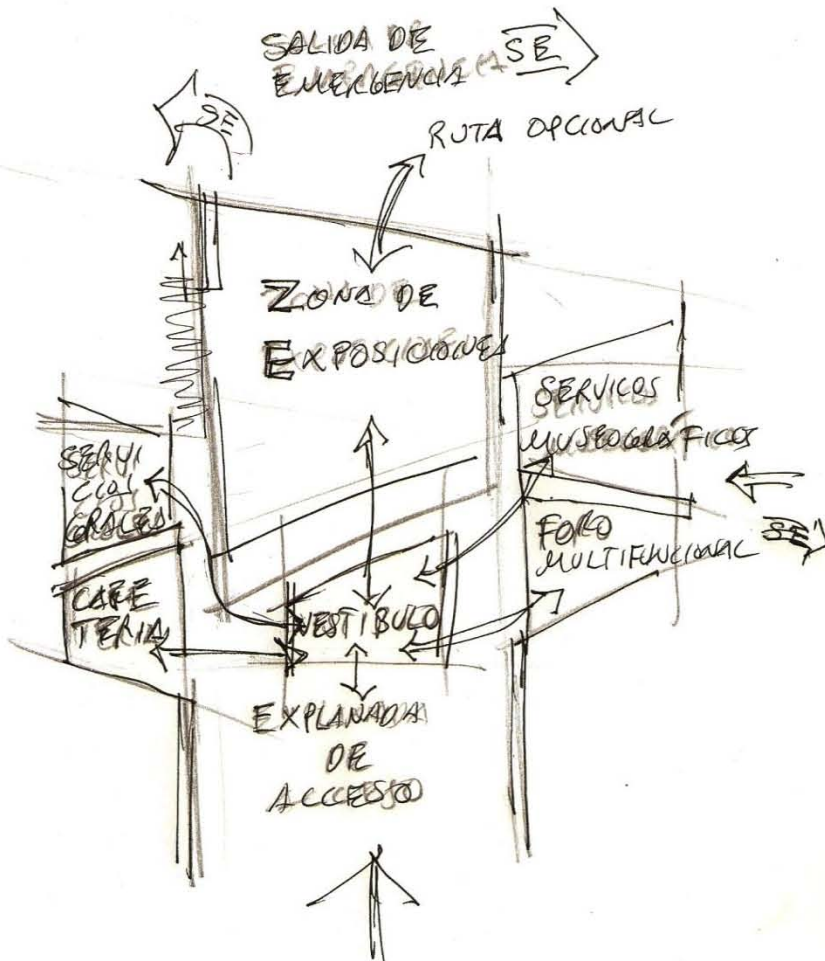 SALIDA DE
EMERGENCIA SE
SE
RUTA OPCIONAL
ZONA DE
EXPOSICIONES
SERVICOS
MUSEOGRÁFICOS
SERVI
CIOS
GRALES
FORO
MULTIFUNCIONAL
SE
CAFE
TERIA
VESTIBULO
EXPLANADA
DE
ACCESO